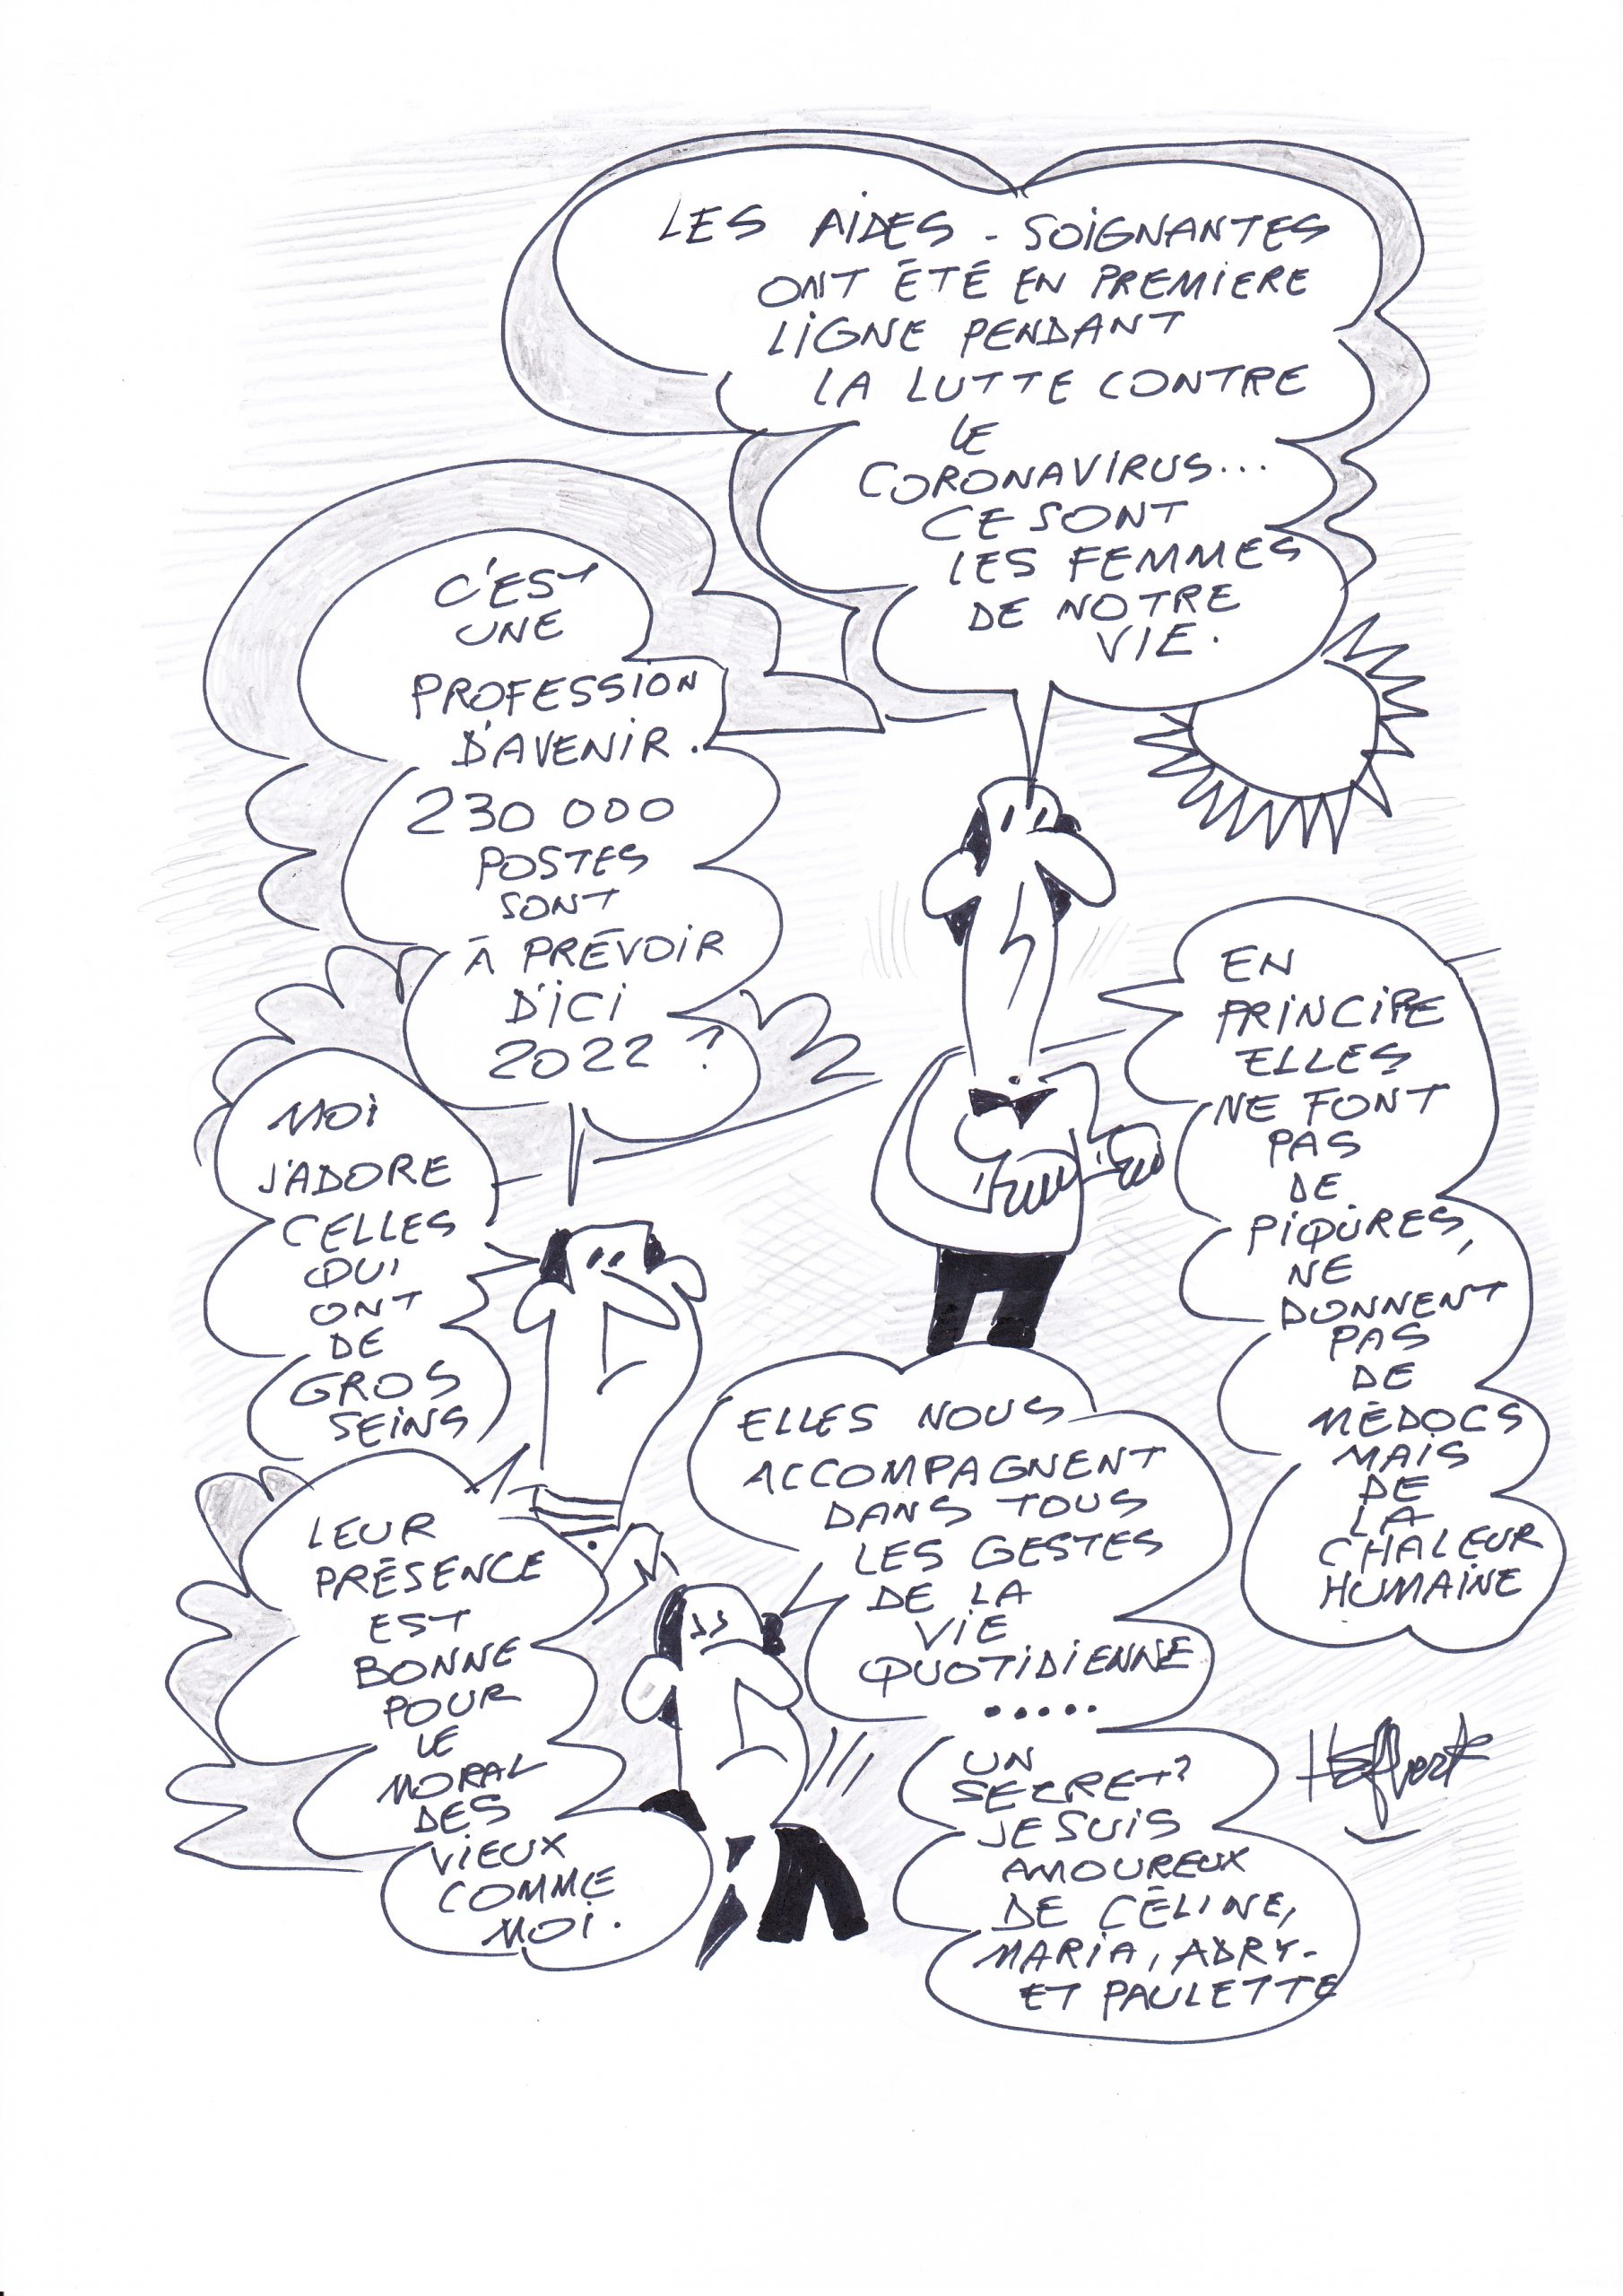 LES AIDES-SOIGNANTES
ONT ÉTÉ EN PREMIERE
LIGNE PENDANT
LA LUTTE CONTRE
LE
CORONAVIRUS...
CE SONT
LES FEMMES
DE NOTRE
VIE.
C'EST
UNE
PROFESSION
D'AVENIR.
230 000
POSTES
SONT
À PRÉVOIR
D'ICI
2022 ?
EN
PRINCIPE
ELLES
NE FONT
PAS
DE
PIQÛRES,
NE
DONNENT
PAS
DE
MÉDOCS
MAIS
DE
LA
CHALEUR
HUMAINE
MOI
J'ADORE
CELLES
QUI
ONT
DE
GROS
SEINS
ELLES NOUS
ACCOMPAGNENT
DANS TOUS
LES GESTES
DE LA
VIE
QUOTIDIENNE
.....
LEUR
PRÉSENCE
EST
BONNE
POUR
LE
MORAL
DES
VIEUX
COMME
MOI.
UN
SECRET?
JE SUIS
AMOUREUX
DE CÉLINE,
MARIA, ADRY-
ET PAULETTE